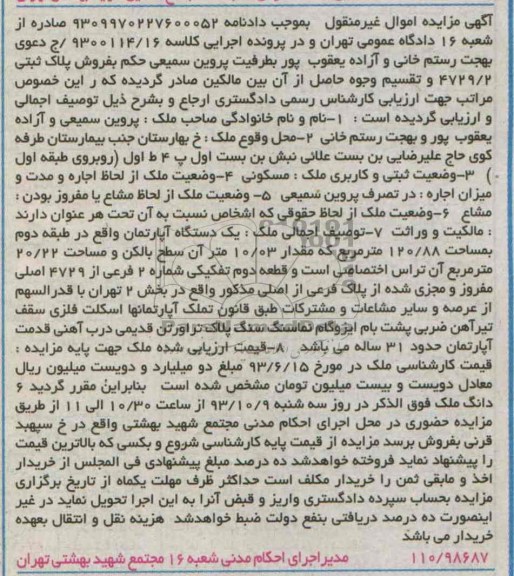 آگهی مزایده اموال غیرمنقول بموجب دادنامه ۹۳۰۹۹۷۰۲۲۷۶۰۰۰۵۲ صادره از
شعبه ۱۶ دادگاه عمومی تهران و در پرونده اجرایی کلاسه ۹۳۰۰۱۱۴/۱۶ /ج دعوی
بهجت رستم خانی و آزاده یعقوب پور بطرفیت پروین سمیعی حکم بفروش پلاک ثبتی
۴۷۲۹/۲ و تقسیم وجوه حاصل از آن بین مالکین صادر گردیده که ر این خصوص
مراتب جهت ارزیابی کارشناس رسمی دادگستری ارجاع و بشرح ذیل توصیف اجمالی
و ارزیابی گردیده است : ۱-نام و نام خانوادگی صاحب ملک : پروین سمیعی و آزاده
یعقوب پور و بهجت رستم خانی ۲-محل وقوع ملک : خ بهارستان جنب بیمارستان طرفه
کوی حاج علیرضایی بن بست علائی نبش بن بست اول پ ۴ ط اول (روبروی طبقه اول
) ۳-وضعیت ثبتی و کاربری ملک : مسکونی ۴-وضعیت ملک از لحاظ اجاره و مدت و
میزان اجاره : در تصرف پروین سمیعی ۵- وضعیت ملک از لحاظ مشاع یا مفروز بودن :
مشاع ۶-وضعیت ملک از لحاظ حقوقی که اشخاص نسبت به آن تحت هر عنوان دارند
: مالکیت و وراثت ۷-توصیف اجمالی ملک : یک دستگاه آپارتمان واقع در طبقه دوم
بمساحت ۱۲۰/۸۸ مترمربع که مقدار ۱۰/۰۳ متر آن سطح بالکن و مساحت ۲۰/۲۲
مترمربع آن تراس اختصاصی است و قطعه دوم تفکیکی شماره ۲ فرعی از ۴۷۲۹ اصلی
مفروز و مجزی شده از پلاک فرعی از اصلی مذکور واقع در بخش ۲ تهران با قدرالسهم
از عرصه و سایر مشاعات و مشترکات طبق قانون تملک آپارتمانها اسکلت فلزی سقف
تیرآهن ضربی پشت بام ایزوگام نماسنگ سنگ پلاک تراورتن قدیمی درب آهنی قدمت
آپارتمان حدود ۳۱ ساله می باشد ۸-قیمت ارزیابی شده ملک جهت پایه مزایده :
قیمت کارشناسی ملک در مورخ ۹۳/۶/۱۵ مبلغ دو میلیارد و دویست میلیون ریال
معادل دویست و بیست میلیون تومان مشخص شده است بنابراین مقرر گردید ۶
دانگ ملک فوق الذکر در روز سه شنبه ۹۳/۱۰/۹ از ساعت ۱۰/۳۰ الی ۱۱ از طریق
مزایده حضوری در محل اجرای احکام مدنی مجتمع شهید بهشتی واقع در خ سپهبد
قرنی بفروش برسد مزایده از قیمت پایه کارشناسی شروع و بکسی که بالاترین قیمت
را پیشنهاد نماید فروخته خواهدشد ده درصد مبلغ پیشنهادی فی المجلس از خریدار
اخذ و مابقی ثمن را خریدار مکلف است حداکثر ظرف مهلت یکماه از تاریخ برگزاری
مزایده بحساب سپرده دادگستری واریز و قبض آنرا به این اجرا تحویل نماید در غیر
اینصورت ده درصد دریافتی بنفع دولت ضبط خواهدشد هزینه نقل و انتقال بعهده
خریدار می باشد
۱۱۰/۹۸۶۸۷ مدیر اجرای احکام مدنی شعبه ۱۶ مجتمع شهید بهشتی تهران